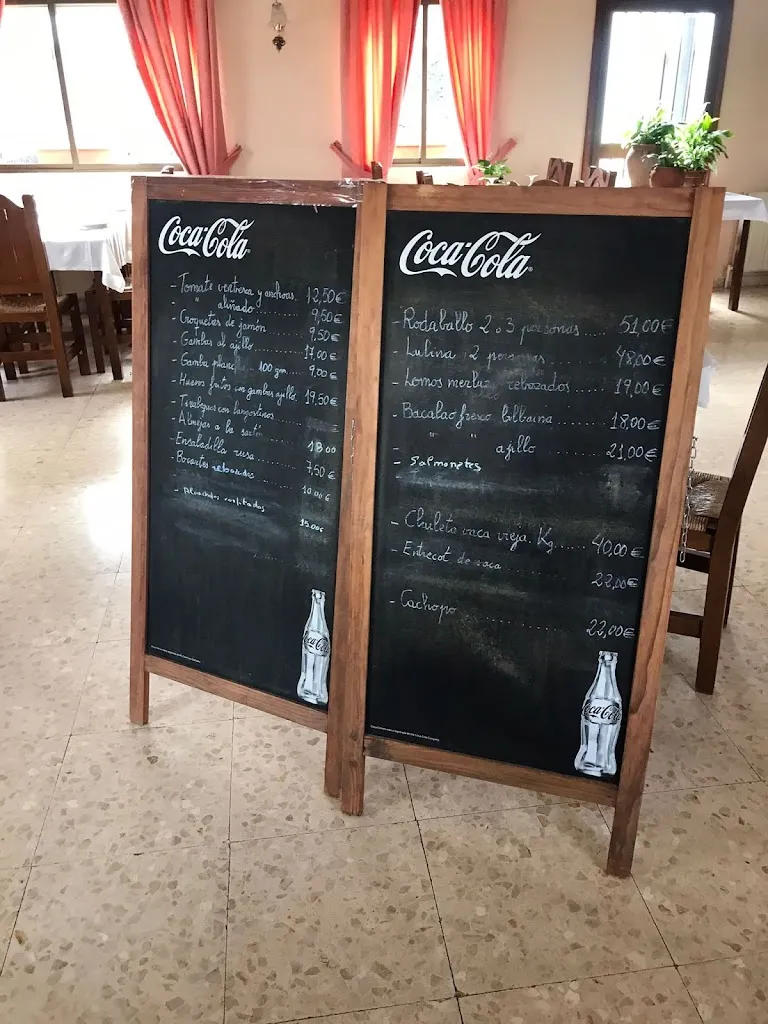 Coca-Cola
- Tomate ventresca y anchoas. 12,50€
- " aliñado ........ 9,50€
- Croquetas de jamón 9,50€
- Gambas al ajillo ........ 17,00€
- Gamba plancha 100 gr. .... 9,00€
- Huevos fritos con gambas ajillo. 19,50€
- Fabes con langostinos ........
- Almejas a la sartén ...... 18,00
- Ensaladilla rusa ........ 7,50€
- Bocartes rebozados ...... 10,00€
15,00€
Coca-Cola
Coca-Cola
- Rodaballo 2 o 3 personas .... 51,00€
- Lubina 2 personas ...... 48,00€
- Lomos merluza rebozados .... 19,00€
- Bacalao fresco bilbaina ...... 18,00€
- " " ajillo ........ 21,00€
- Salmonetes
- Chuleta vaca vieja. Kg..... 40,00€
- Entrecot de vaca ........ 22,00€
- Cachopo ........ 22,00€
Coca-Cola